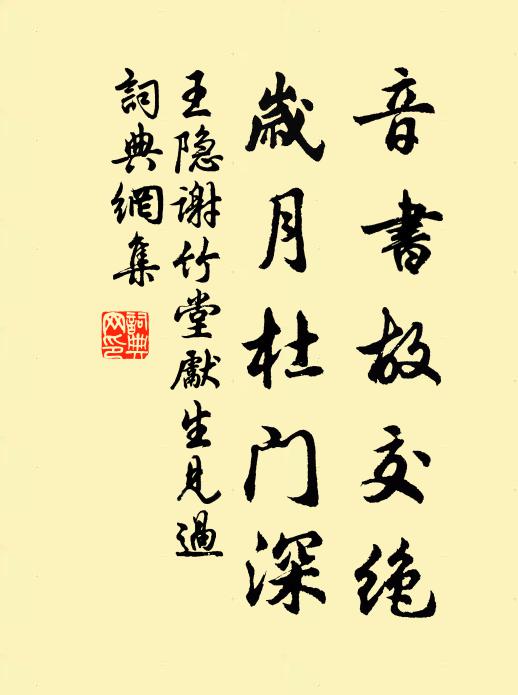 音書故交絶
歲月杜门深
王隐谢竹堂獻生見過
詞典網集
詞典网印